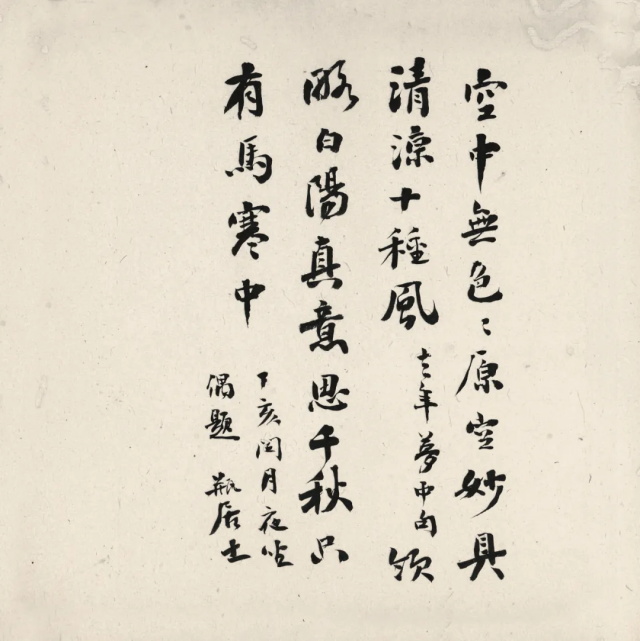 空中無色〻原空妙具
清涼十種風 年夢中句 領
略白陽真意思千秋只
有馬寒中
丁亥閏月夜坐
偶題 瓶居士